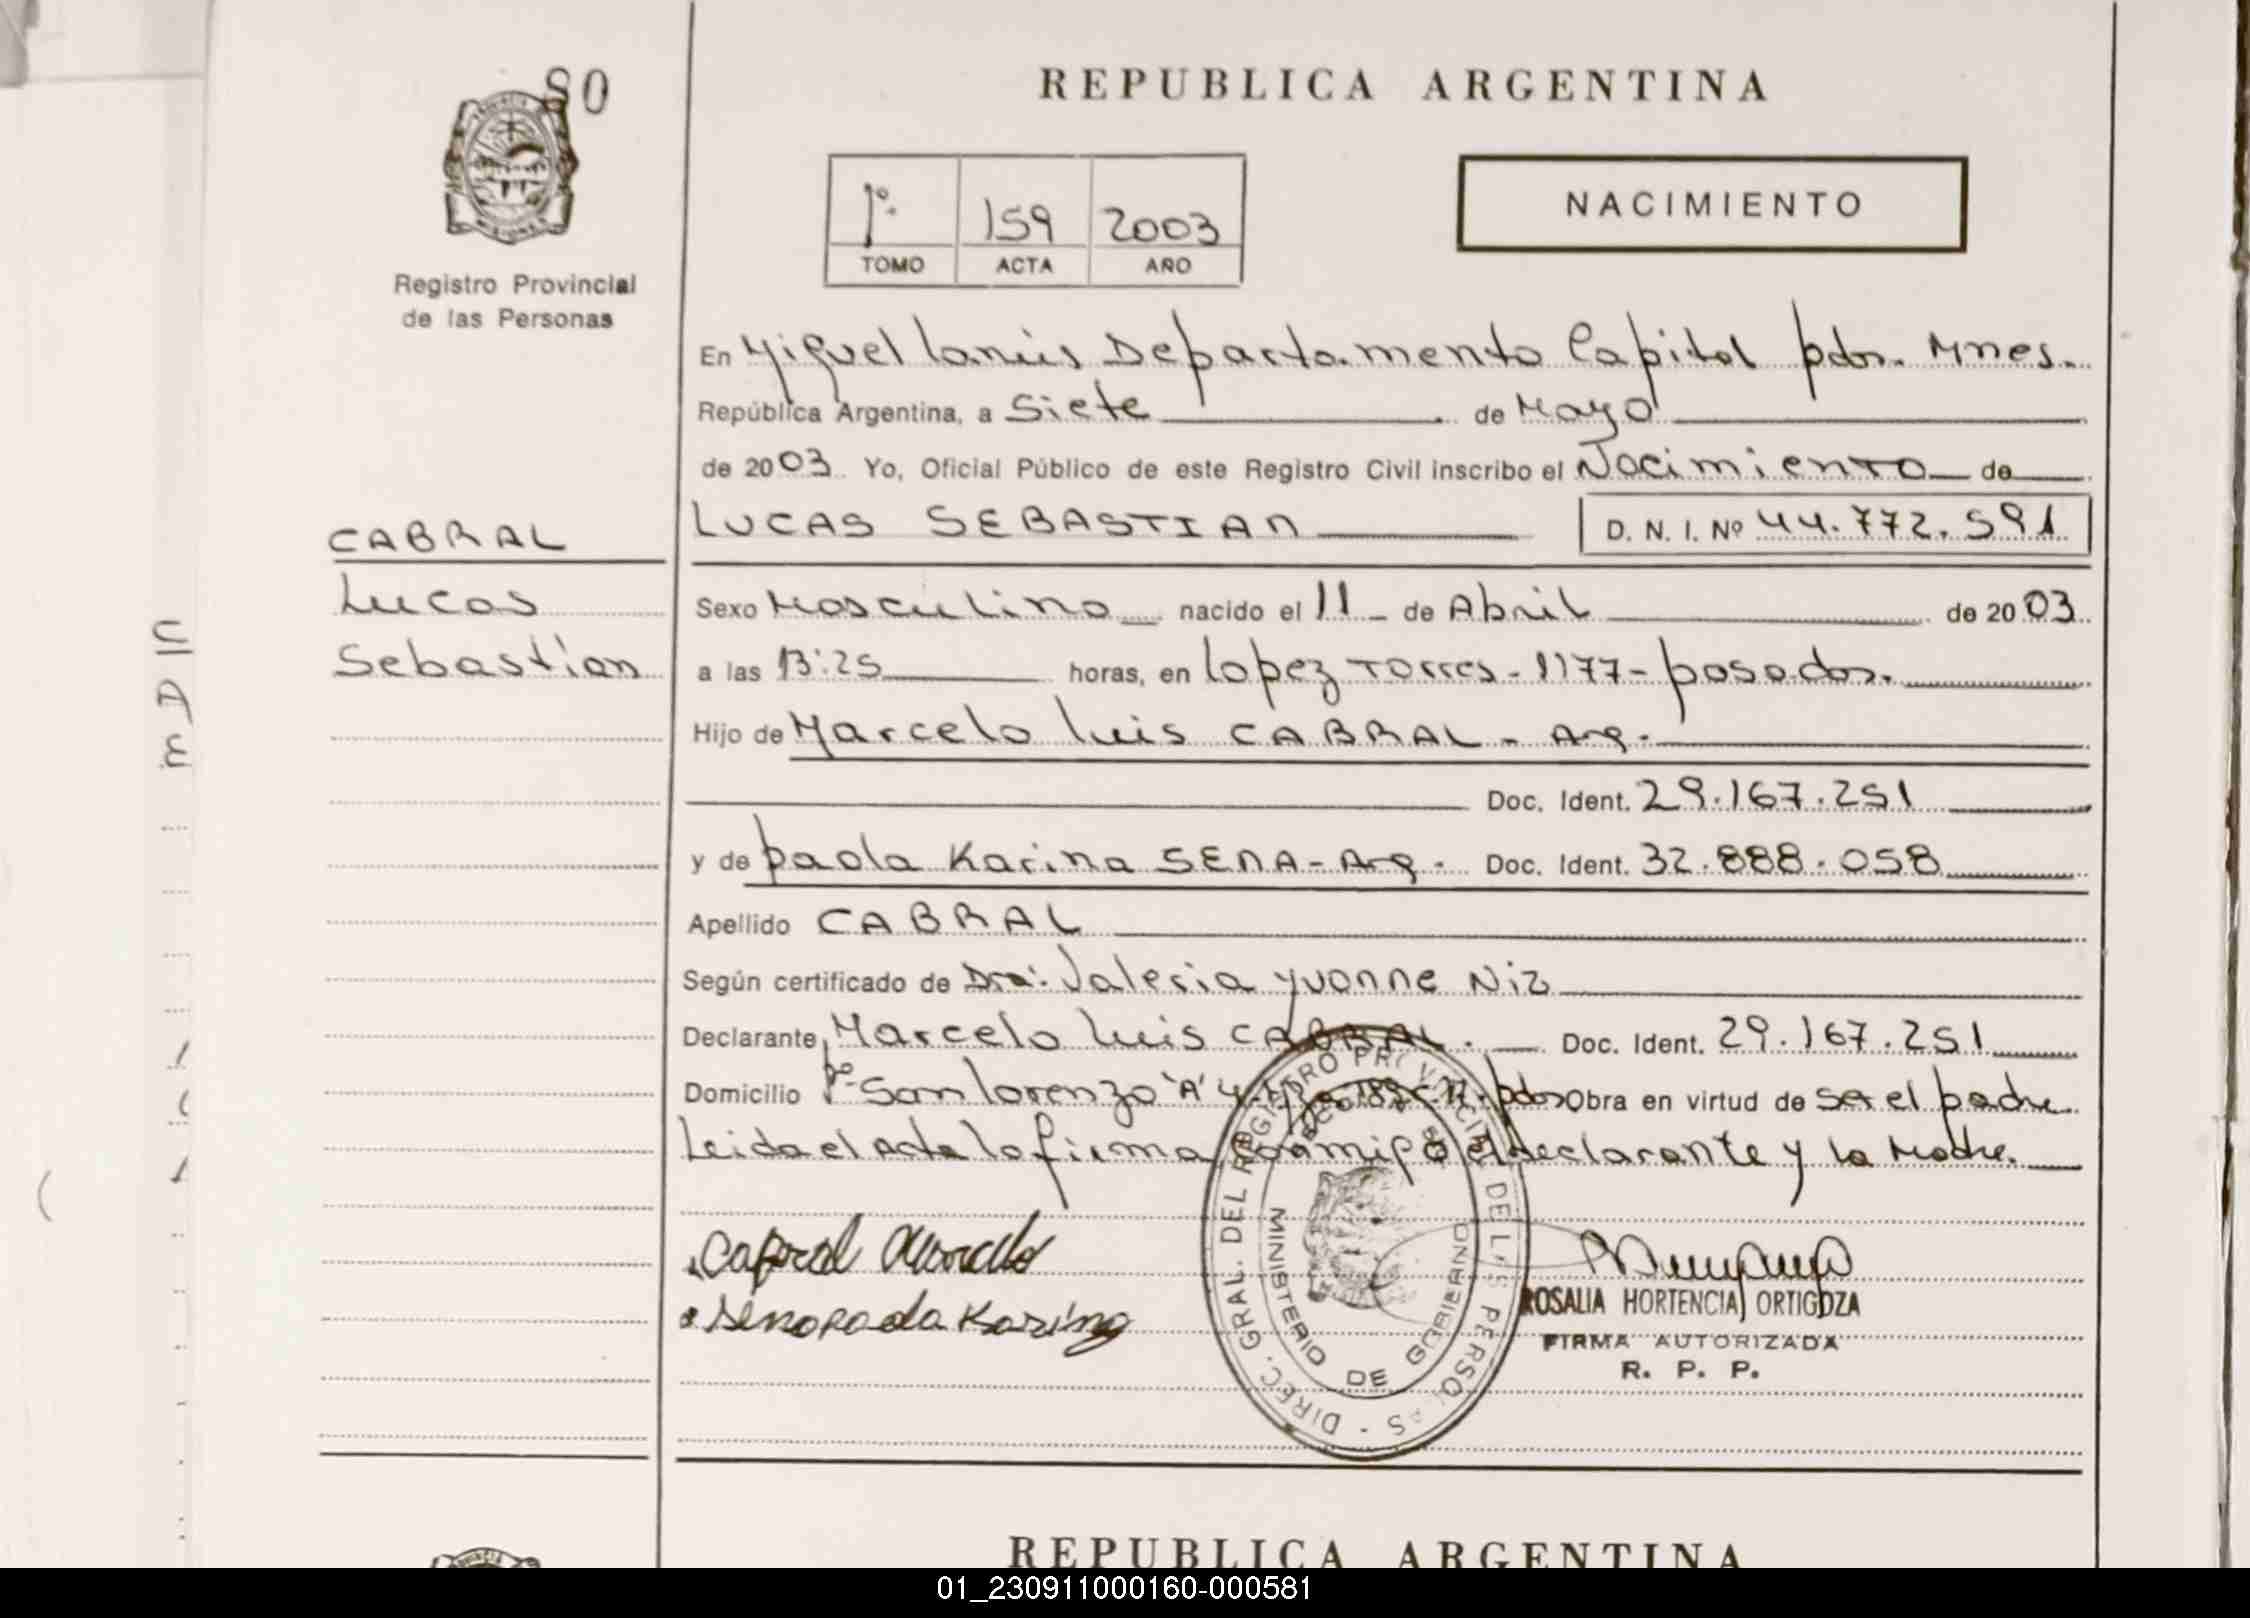 80
REPUBLICA ARGENTINA
Registro Provincial
de las Personas
1º 159 2003
TOMO ACTA AÑO
NACIMIENTO
En Miguel Lanús Departamento Capital pdas. Mnes.
República Argentina, a Siete de Mayo
de 2003 Yo, Oficial Público de este Registro Civil inscribo el Nacimiento de
LUCAS SEBASTIAN D. N. I. Nº 44.772.591
CABRAL
Lucas
Sebastian
Sexo Masculino nacido el 11 de Abril de 2003
a las 13:25 horas, en Lopez Torres - 1177 - posadas.
Hijo de Marcelo Luis CABRAL - Arg.
Doc. Ident. 29.167.251
y de paola Karina SENA - Arg. Doc. Ident. 32.888.058
Apellido CABRAL
Según certificado de Dra: Valeria Yvonne Niz
Declarante Marcelo Luis CABRAL. Doc. Ident. 29.167.251
Domicilio Bº San Lorenzo "A" 4 pdas Obra en virtud de ser el padre
Leida el Acta la firma conmigo el declarante y la Madre.
Cabral Marcelo
Sena Paola Karina
DIREC. GRAL. DEL REGISTRO PROVINCIAL DE LAS PERSONAS -
MINISTERIO DE GOBIERNO
ROSALIA HORTENCIA ORTIGOZA
FIRMA AUTORIZADA
R. P. P.
REPUBLICA ARGENTINA
01_230911000160-000581